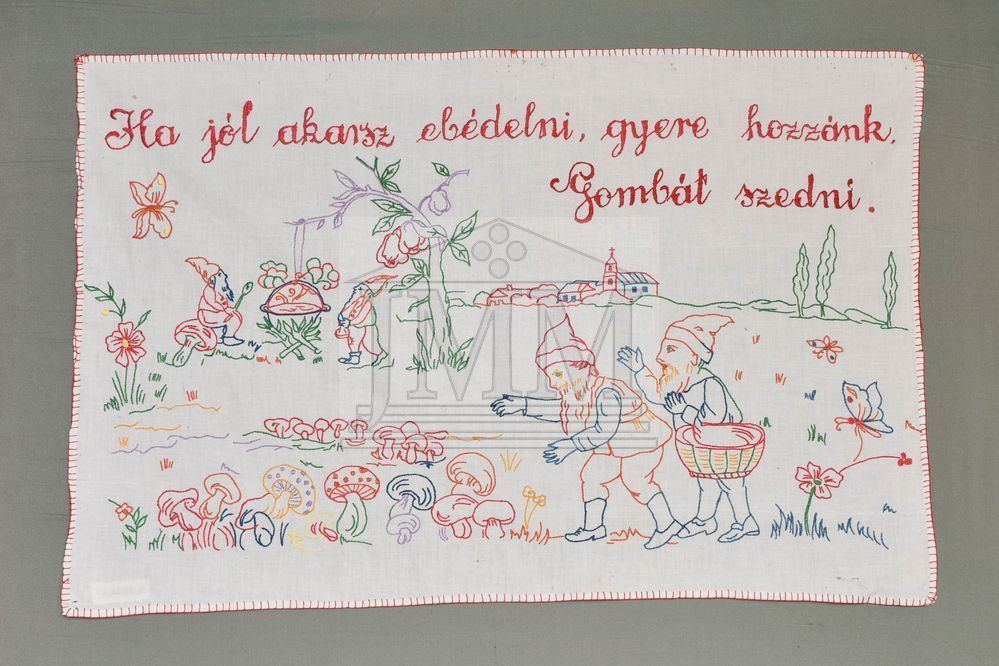 Ha jól akarsz ebédelni, gyere hozzánk.
Gombát szedni.
JMM